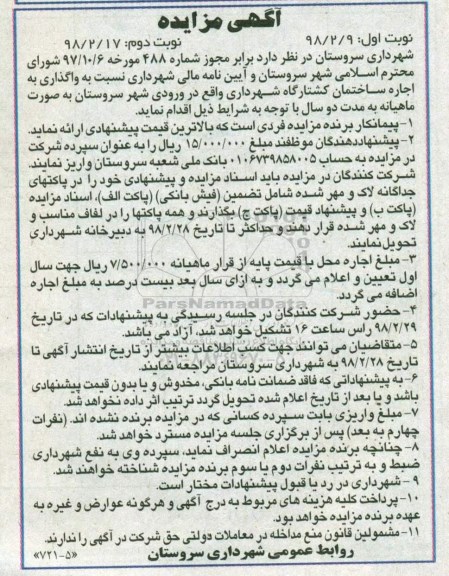 آگهی مزایده
نوبت اول: ۹۸/۲/۹ نوبت دوم: ۹۸/۲/۱۷
شهرداری سروستان در نظر دارد برابر مجوز شماره ۴۸۸ مورخه ۹۷/۱۰/۶ شورای
محترم اسلامی شهر سروستان و آیین نامه مالی شهرداری نسبت به واگذاری به
اجاره ساختمان کشتارگاه شهرداری واقع در ورودی شهر سروستان به صورت
ماهیانه به مدت دو سال با توجه به شرایط ذیل اقدام نماید.
۱-پیمانکار برنده مزایده فردی است که بالاترین قیمت پیشنهادی ارائه نماید.
۲-پیشنهاددهندگان موظفند مبلغ ۱۵/۰۰۰/۰۰۰ ریال را به عنوان سپرده شرکت
در مزایده به حساب ۰۱۰۶۷۳۹۸۵۸۰۰۵ بانک ملی شعبه سروستان واریز نمایند.
شرکت کنندگان در مزایده باید اسناد مزایده و پیشنهادی خود را در پاکتهای
جداگانه لاک و مهر شده شامل تضمین (فیش بانکی) (پاکت الف)، اسناد مزایده
(پاکت ب) و پیشنهاد قیمت (پاکت ج) بگذارند و همه پاکتها را در لفاف مناسب و
لاک و مهر شده قرار دهند و حداکثر تا تاریخ ۹۸/۲/۲۸ به دبیرخانه شهرداری
تحویل نمایند.
۳- مبلغ اجاره محل با قیمت پایه از قرار ماهیانه ۷/۵۰۰/۰۰۰ ریال جهت سال
اول تعیین و اعلام می گردد و به ازای سال بعد بیست درصد به مبلغ اجاره
اضافه می گردد.
ParsNamadData
۴- حضور شرکت کنندگان در جلسه رسیدگی به پیشنهادات که در تاریخ
۹۸/۲/۲۹ راس ساعت ۱۶ تشکیل خواهد شد، آزاد می باشد.
۵- متقاضیان می توانند جهت کسب اطلاعات بیشتر از تاریخ انتشار آگهی تا
تاریخ ۹۸/۲/۲۸ به شهرداری سروستان مراجعه نمایند.
۶- به پیشنهاداتی که فاقد ضمانت نامه بانکی، مخدوش و یا بدون قیمت پیشنهادی
باشد و یا بعد از تاریخ اعلام شده تحویل گردد ترتیب اثر داده نخواهد شد.
۷- مبلغ واریزی بابت سپرده کسانی که در مزایده برنده نشده اند. (نفرات
چهارم به بعد) پس از برگزاری جلسه مزایده مسترد خواهد شد.
۸- چنانچه برنده مزایده اعلام انصراف نماید، سپرده وی به نفع شهرداری
ضبط و به ترتیب نفرات دوم یا سوم برنده مزایده شناخته خواهند شد.
۹- شهرداری در رد یا قبول پیشنهادات مختار است.
۱۰- پرداخت کلیه هزینه های مربوط به درج آگهی و هرگونه عوارض و غیره به
عهده برنده مزایده خواهد بود.
۱۱- مشمولین قانون منع مداخله در معاملات دولتی حق شرکت در آگهی را ندارند.
روابط عمومی شهرداری سروستان «۷۲۱-۵»